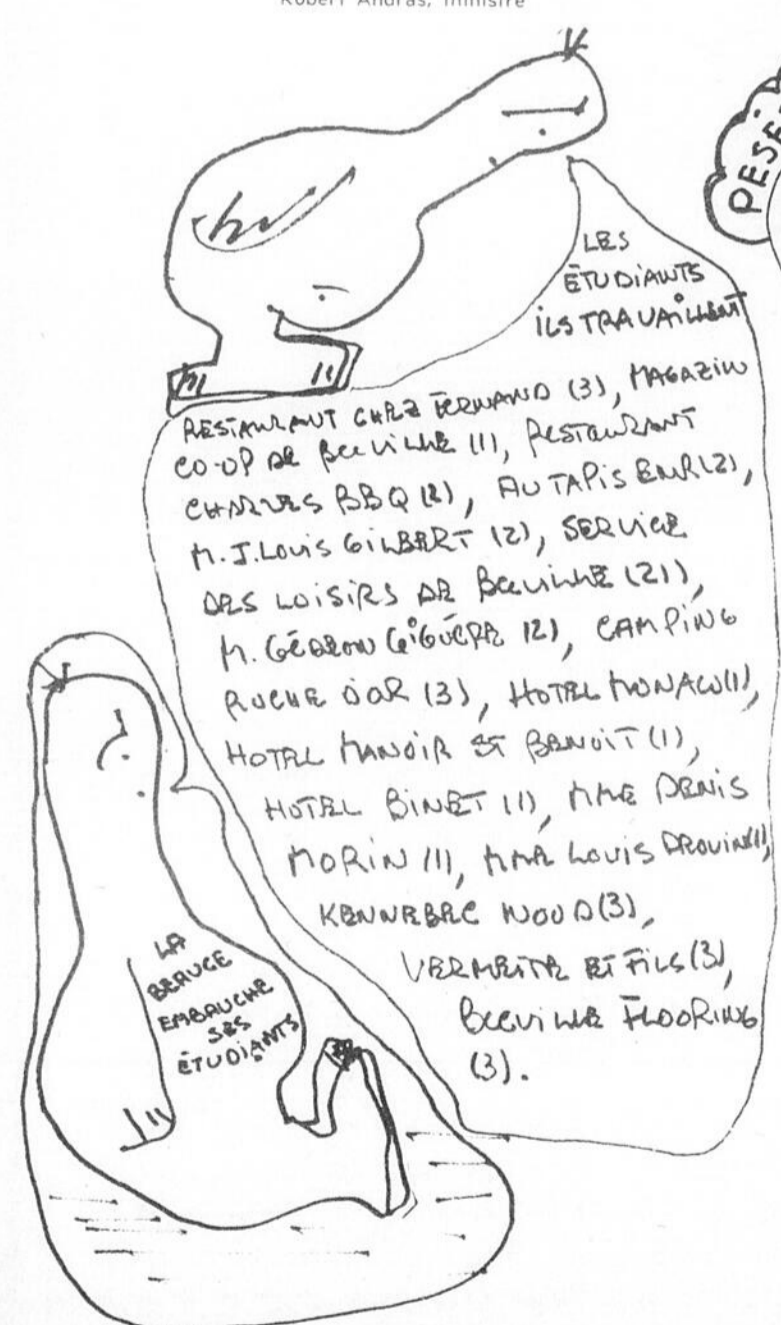 Robert Andras, ministre
PESE
LES
ÉTUDIANTS
ILS TRAVAILLENT
RESTAURANT CHEZ FERNAND (3), MAGAZIN
CO-OP DE BCEVILLE (1), RESTAURANT
CHARLES BBQ (2), AU TAPIS ENR (2),
M. J. LOUIS GILBERT (2), SERVICE
DES LOISIRS DE BCEVILLE (21),
M. GÉDÉON GIGUÈRE (2), CAMPING
RUCHE D'OR (3), HOTEL MONACO (1),
HOTEL MANOIR ST BENOIT (1),
HOTEL BINET (1), MME DENIS
MORIN (1), MME LOUIS DROUIN (1),
KENNEBEC WOOD (3),
ET FILS (3),
BCEVILLE FLOORING
(3).
LA
BEAUCE
EMBAUCHE
SES
ÉTUDIANTS